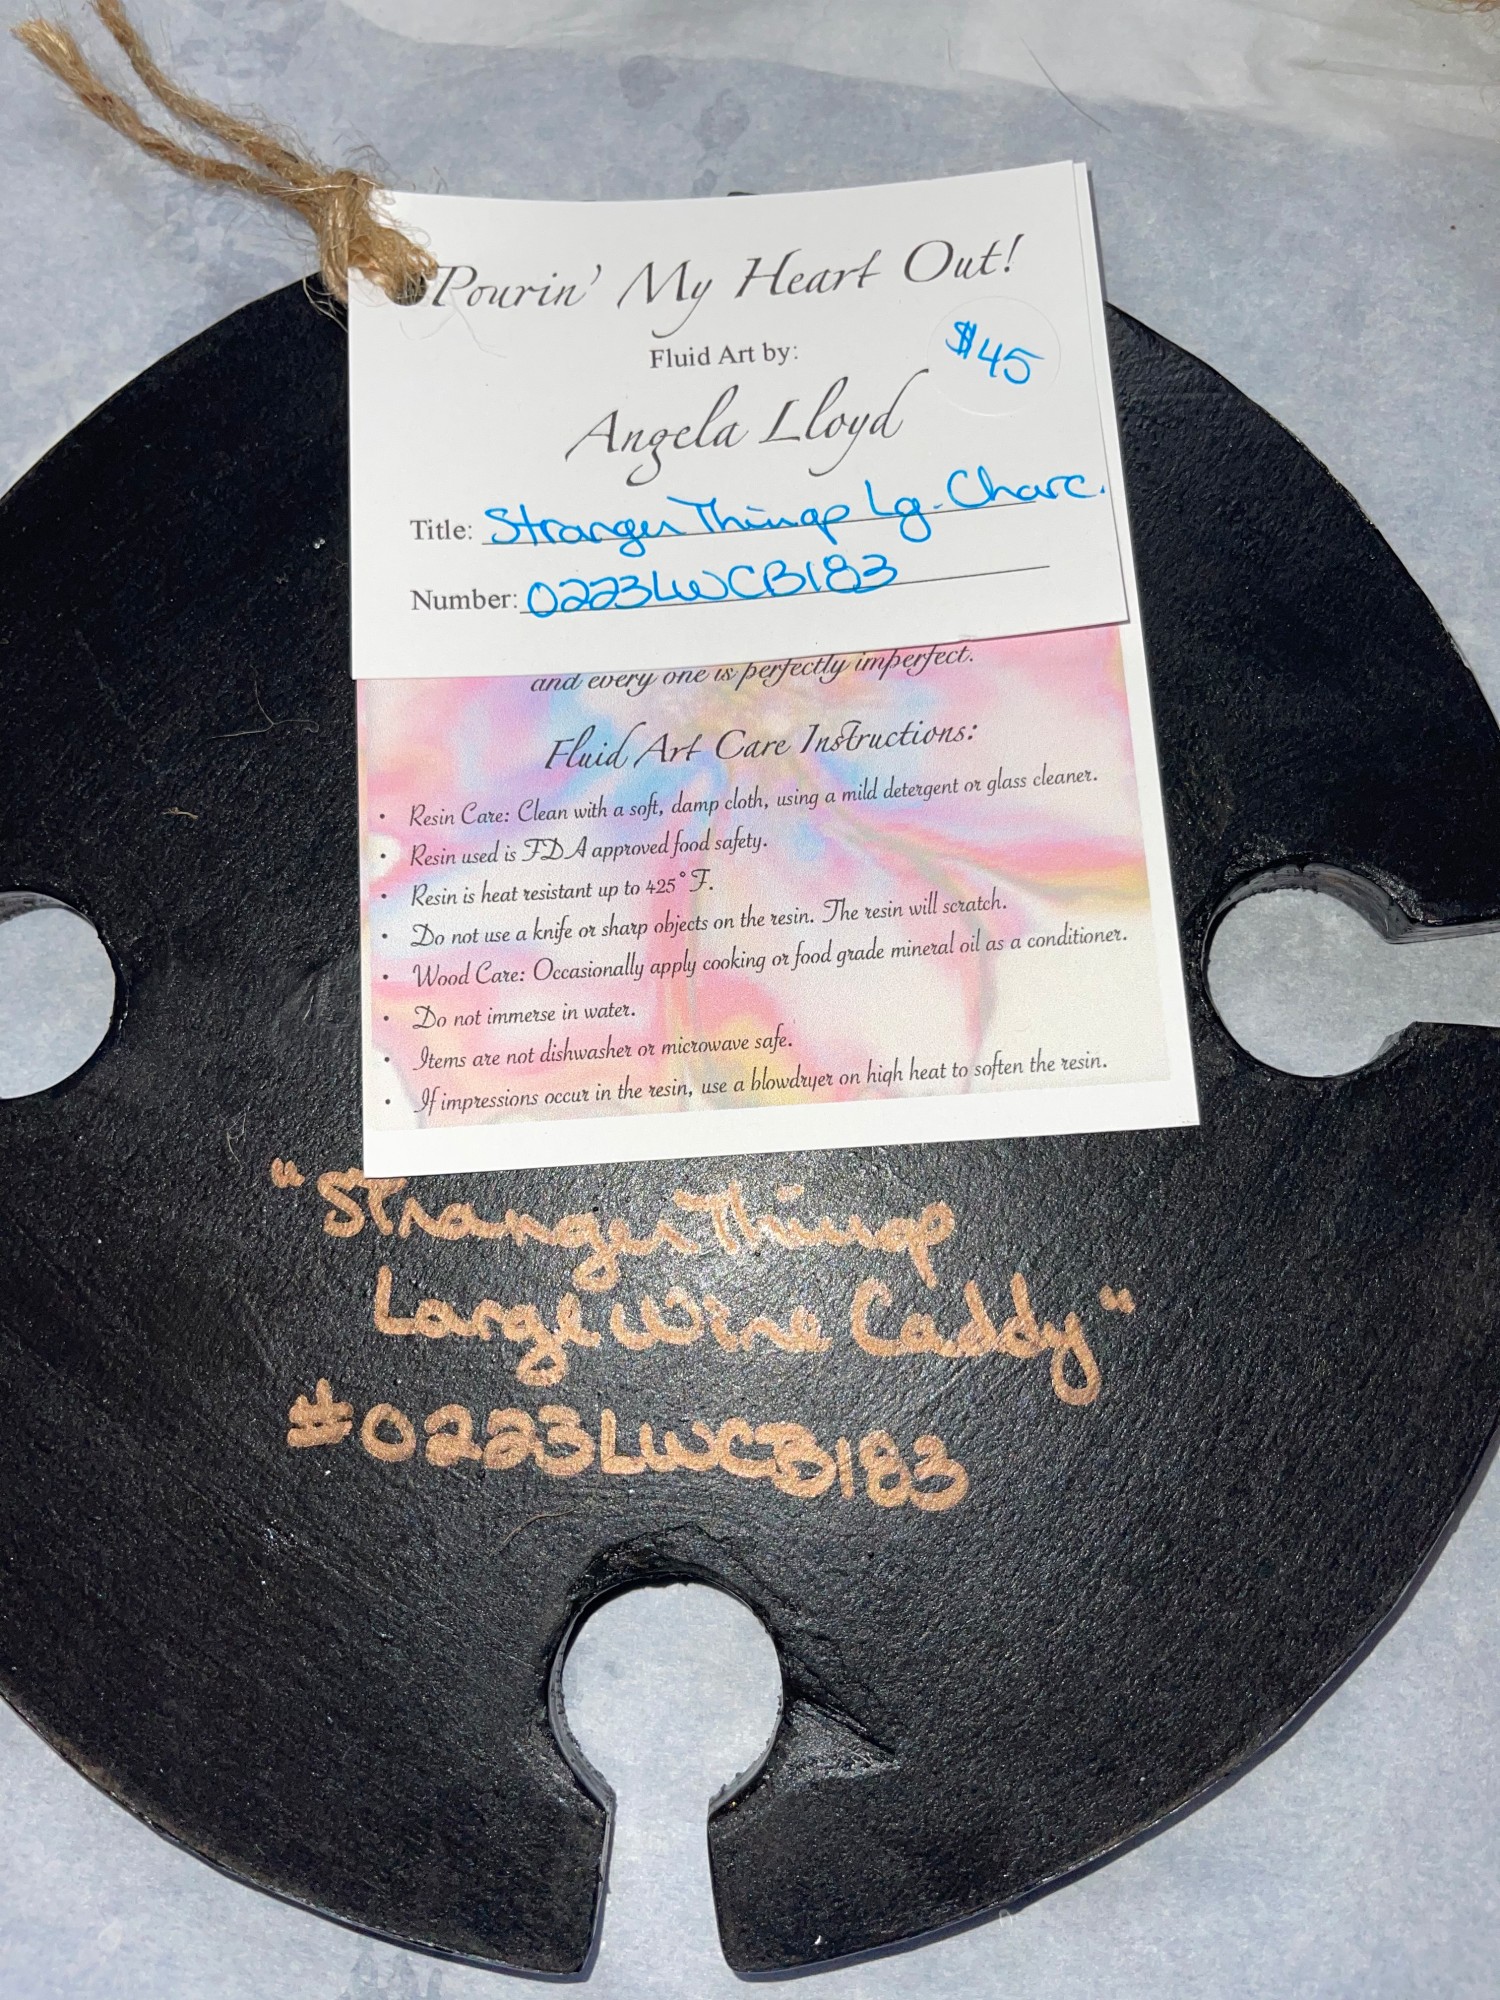 Pourin' My Heart Out!
Fluid Art by:
$45
Angela Lloyd
Title: Stranger Things Lg. Charc.
Number: 0223LWCB183
and every one is perfectly imperfect.
Fluid Art Care Instructions:
• Resin Care: Clean with a soft, damp cloth, using a mild detergent or glass cleaner.
• Resin used is FDA approved food safety.
• Resin is heat resistant up to 425° F.
• Do not use a knife or sharp objects on the resin. The resin will scratch.
• Wood Care: Occasionally apply cooking or food grade mineral oil as a conditioner.
• Do not immerse in water.
• Items are not dishwasher or microwave safe.
• If impressions occur in the resin, use a blowdryer on high heat to soften the resin.
"Stranger Things
Large Wine Caddy"
#0223LWCB183